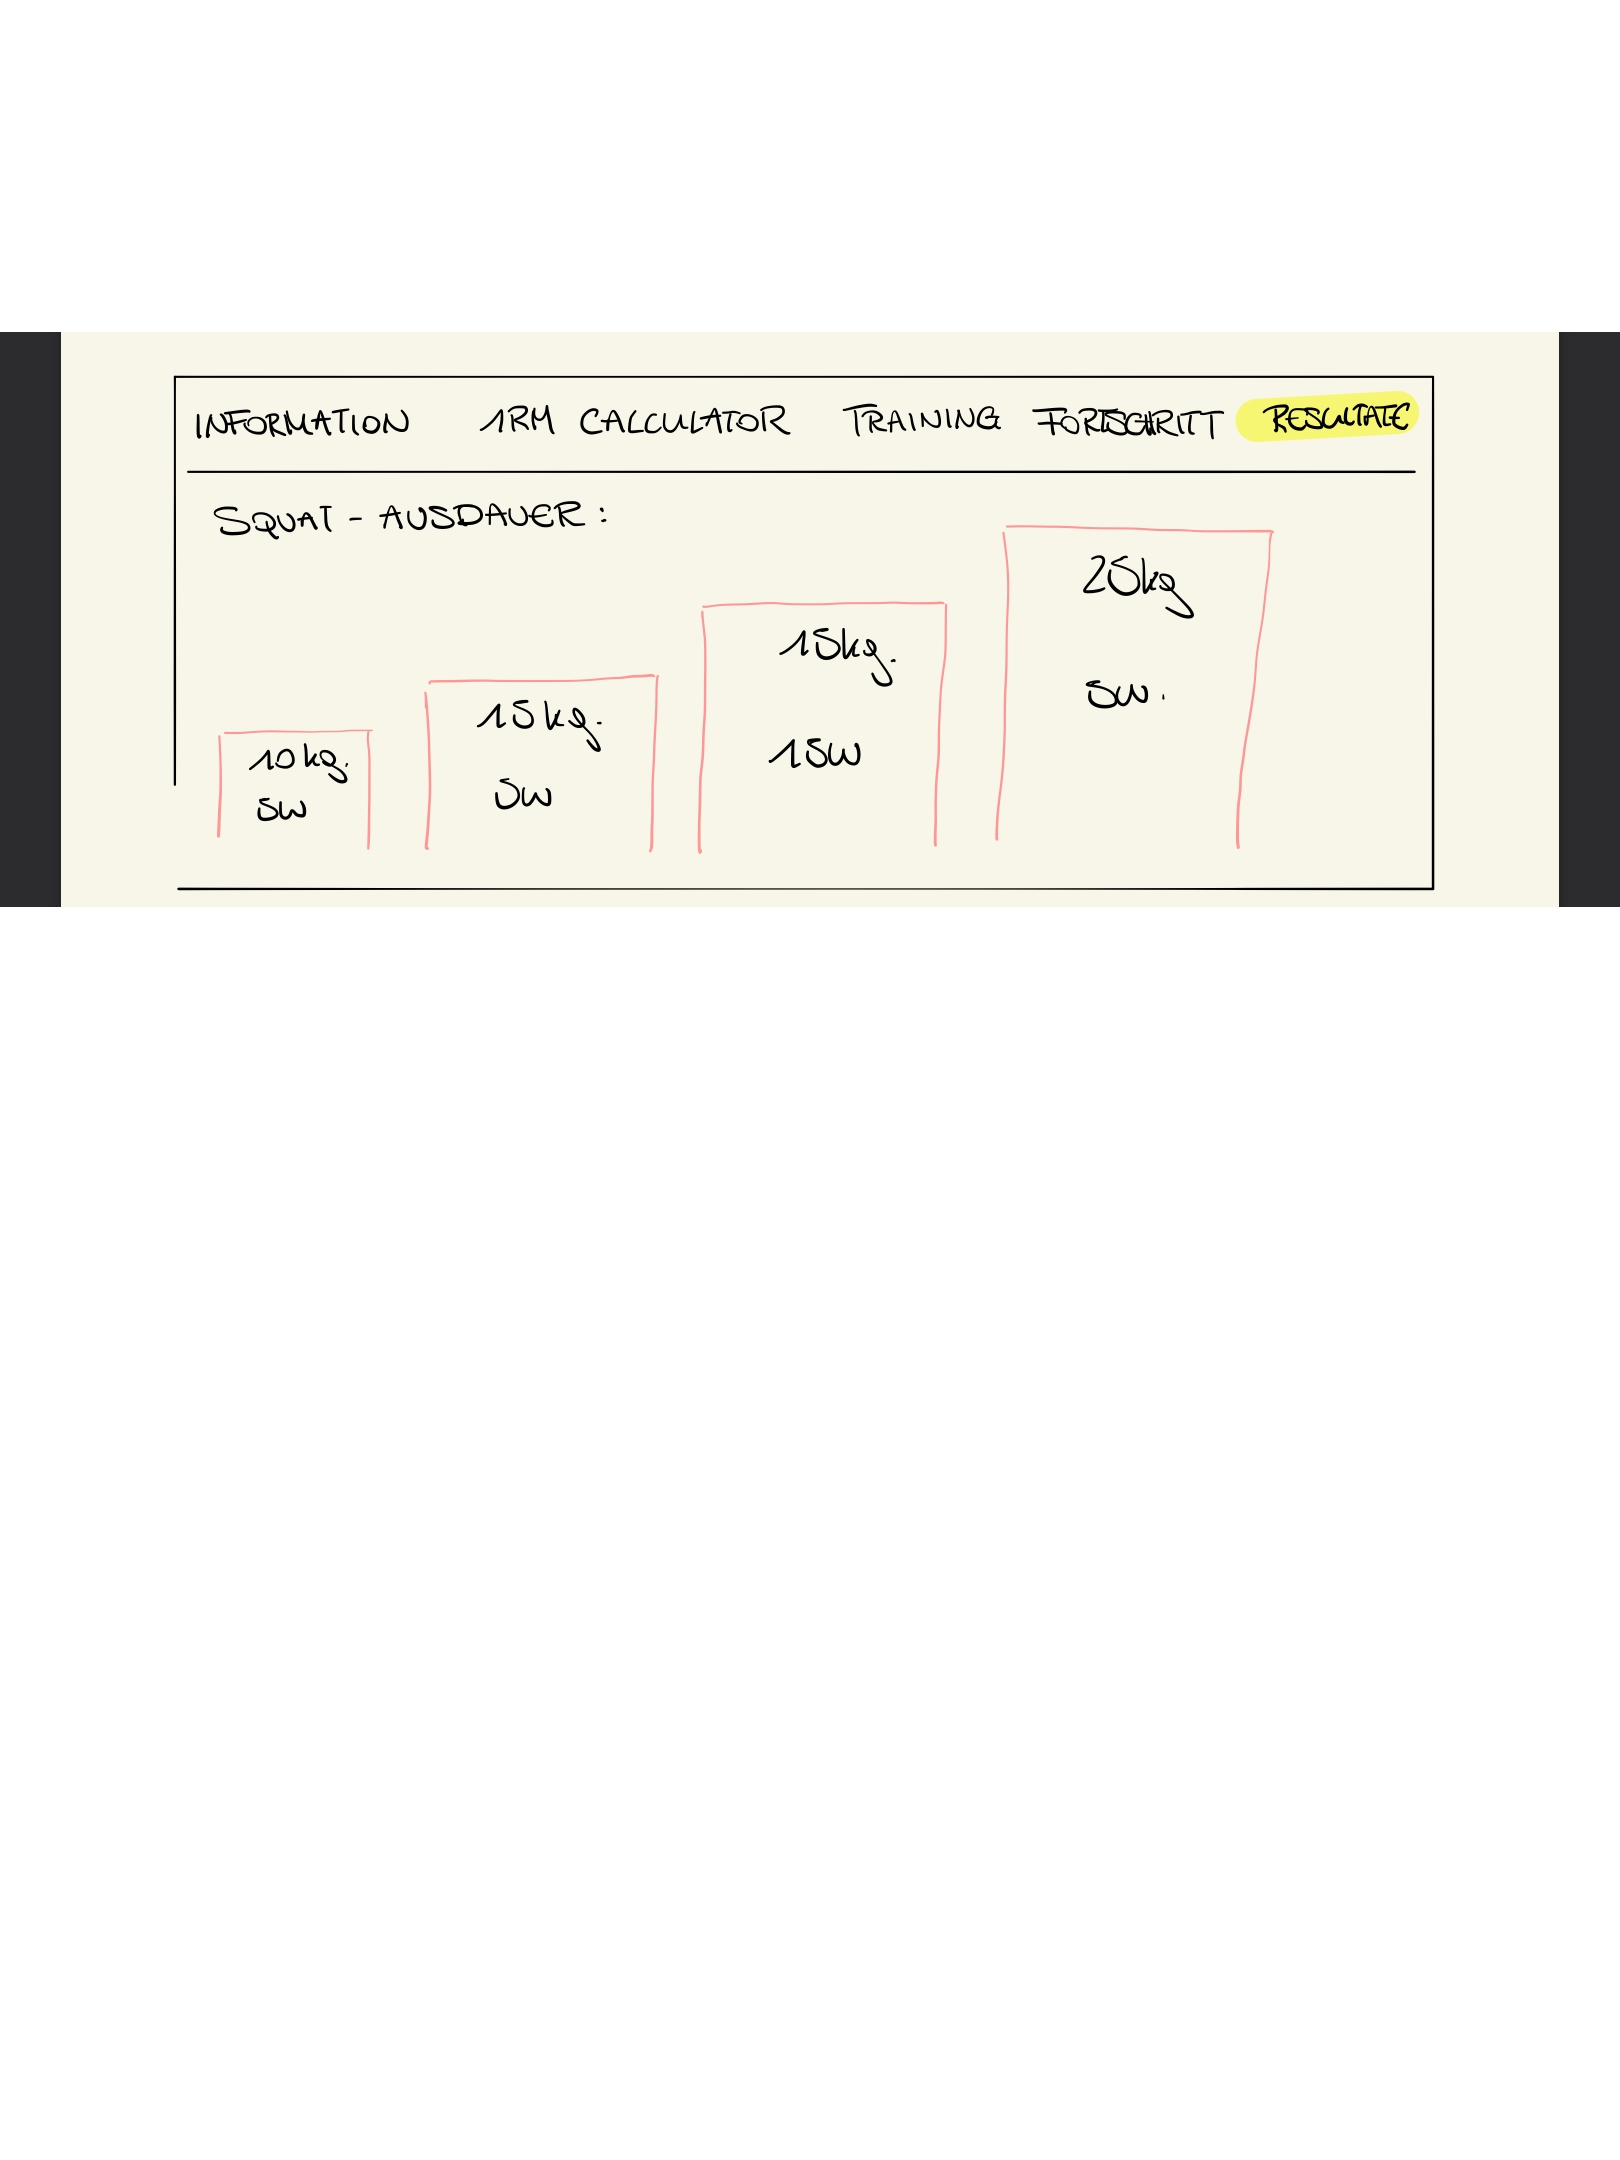 INFORMATION 1RM CALCULATOR TRAINING FORTSCHRITT RESULTATE
SQUAT - AUSDAUER:
10kg.
5W
15kg.
5W
15kg.
15W
25kg
5W.